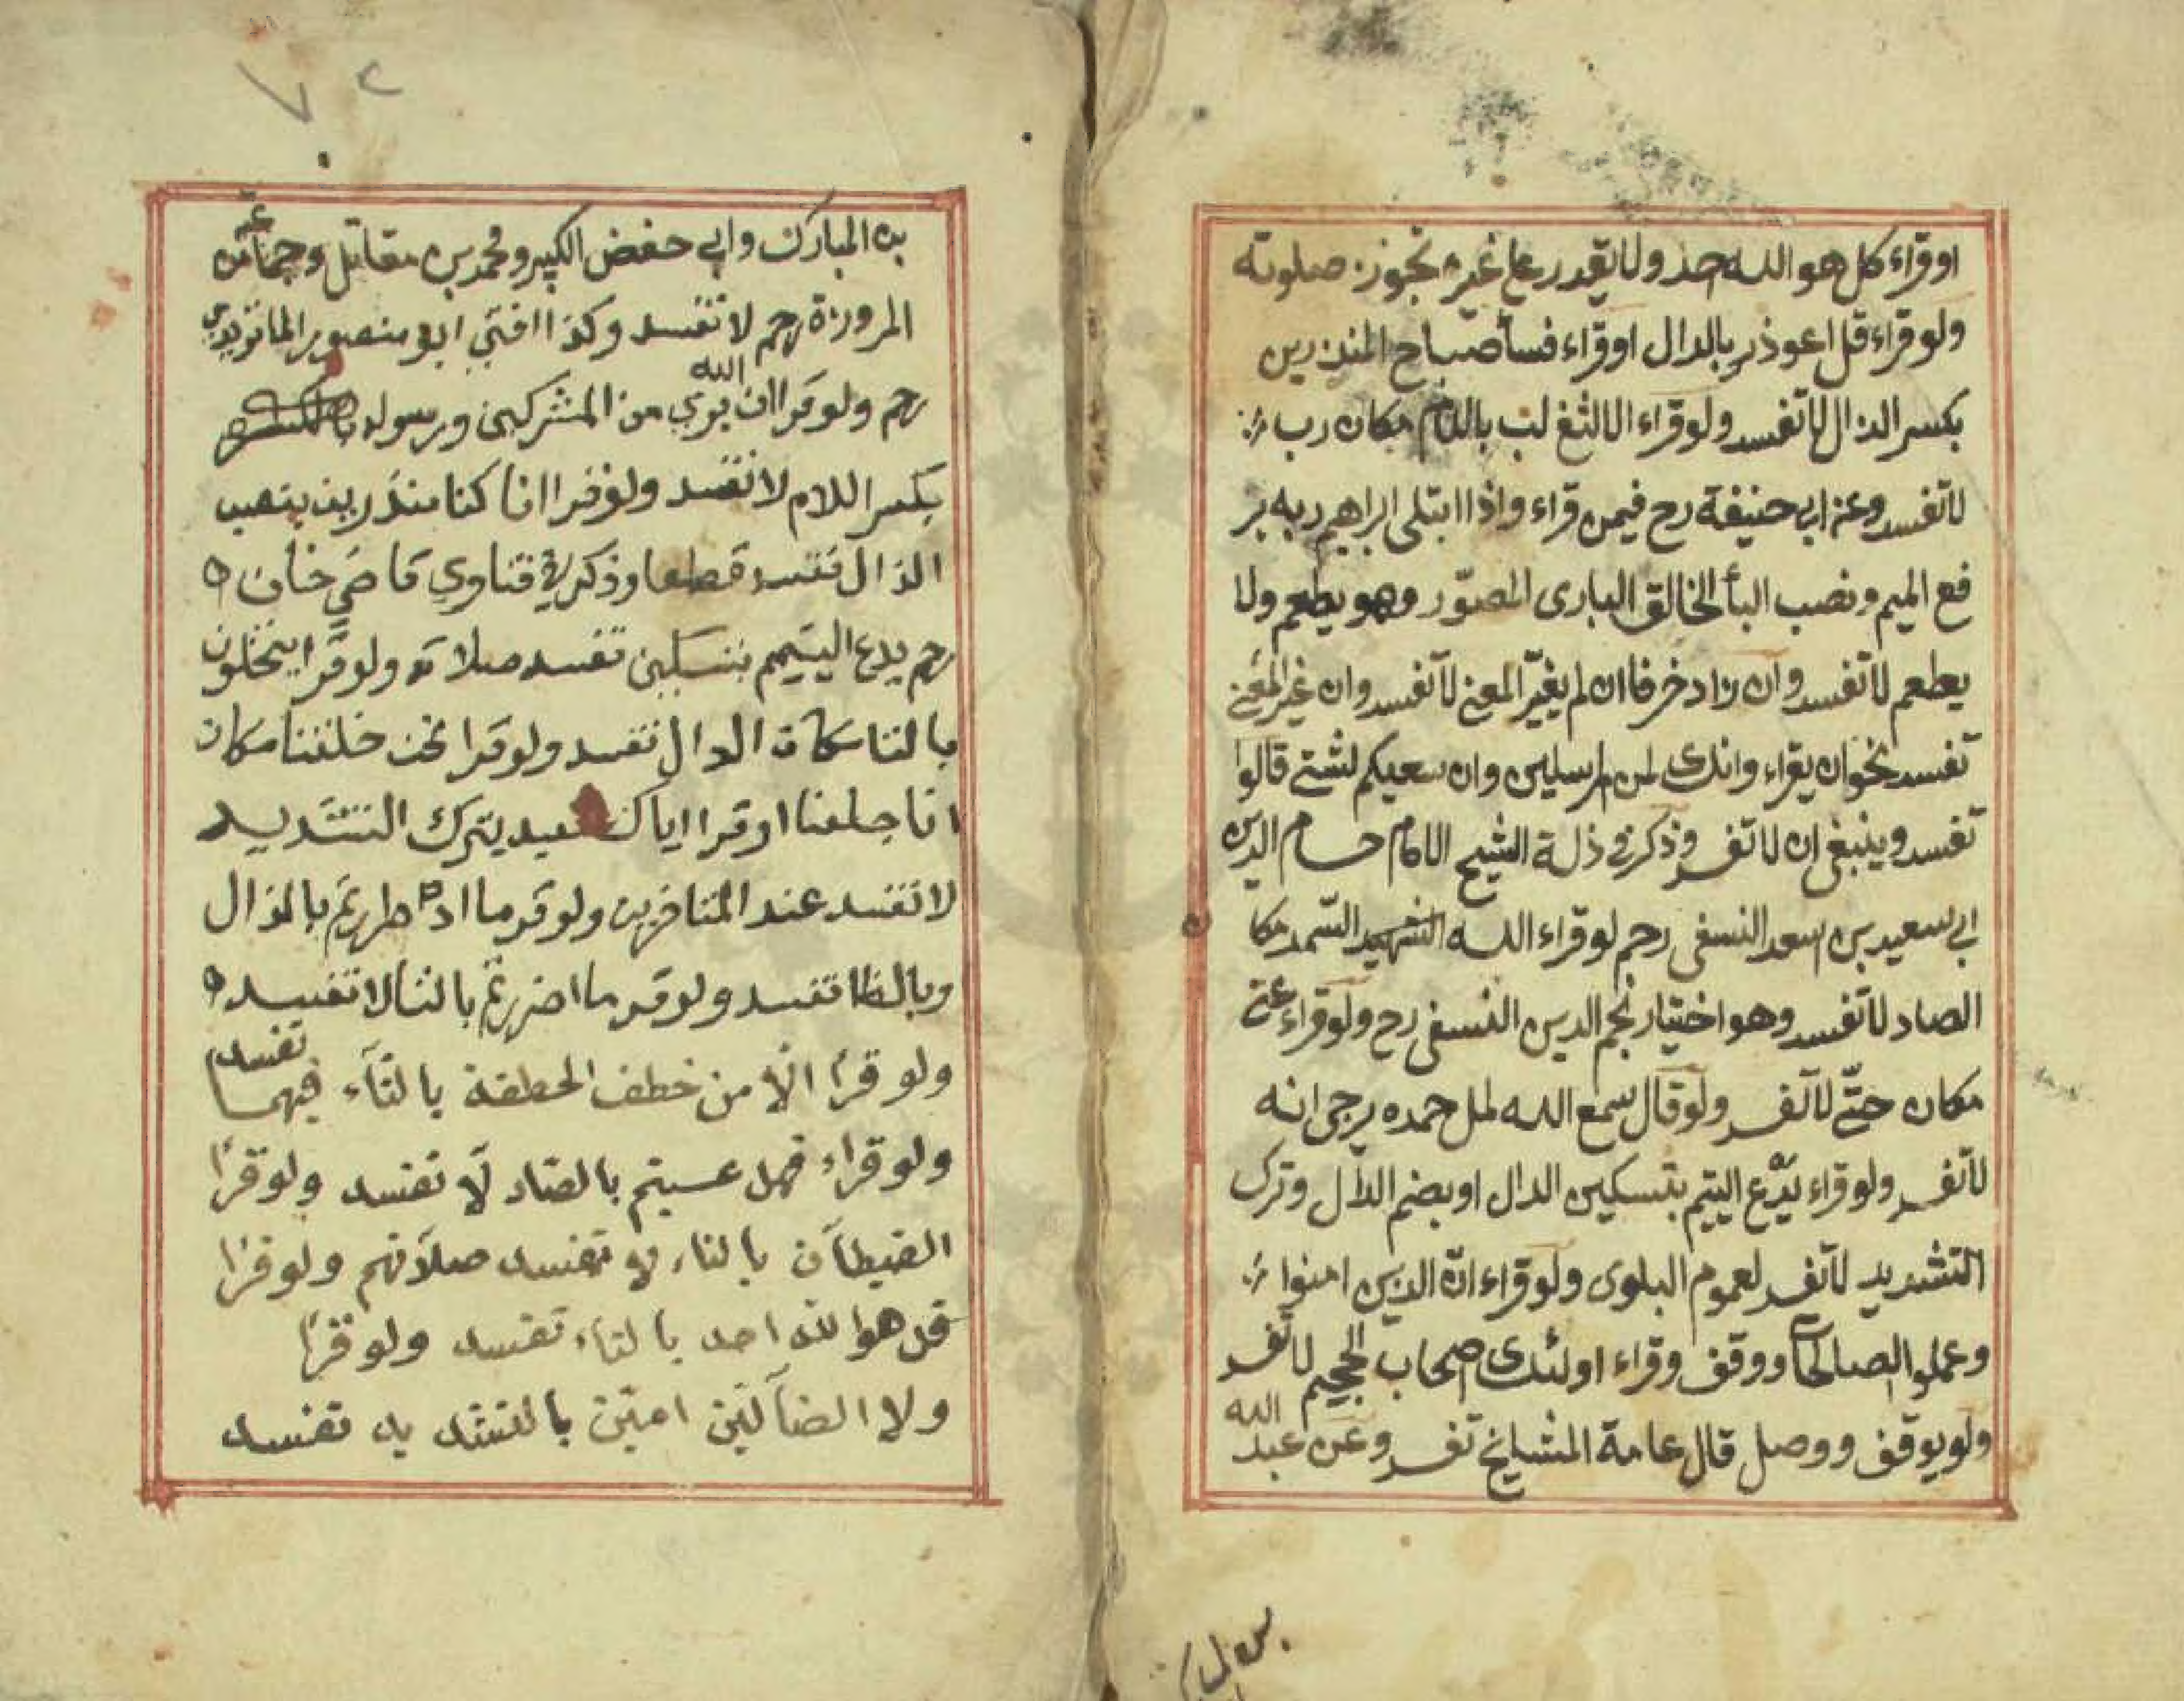 اوقراء كل هو الله احد ولا يقدر على غيره تجوز صلوته
ولو قراء قل اعوذ بالدال اوقراء فسأ صباح المنذرين
بكسر الذال لا تفسد ولو قراء الالثغ لب باللام مكان رب
لا تفسد وعن ابي حنيفة رح فيمن قراء واذا ابتلى ابراهيم ربه بر
فع الميم ونصب البأ الخالق البارى المصوّر وهو يطعم ولا
يطعم لا تفسد وان زاد حرفا ان لم يغيّر المعنى لا تفسد وان غير المعنى
تفسد نحو ان يقراء وانك لمن المرسلين وان سعيكم لشتى قالوا
تفسد وينبغى ان لا تفسد وذكر فى ذلة الشيخ الامام حسام الدين
ابي سعيد بن اسعد النسفى رحم لو قراء الله السمد مكا
الصاد لا تفسد وهو اختيار نجم الدين النسفى رح ولو قراء عتى
مكان حتّى لا تفسد ولو قال سمع الله لمل حمده يرجى انه
لا تفسد ولو قراء يدّع اليتيم بتسكين الدال او بضم الدال وترك
التشديد لا تفسد لعموم البلوى ولو قراء انّ الذين امنوا
وعملوا الصالحات ووقف وقراء اولئك اصحاب الجحيم لا تفسد
ولو يوقف ووصل قال عامة المشايخ تفسد وعن عبد الله
٧٢
بن المبارك وابي حفض الكبير ومحمد بن مقاتل وجماعة
المروزة رحم لا تفسد وكذا افتي ابو منصور الماتريدي
رحم ولو قرا ان الله بري من المشركين ورسوله
بكسر اللام لا تفسد ولو قرا انا كنا منذرين بنصب
الذال تفسد قطعا وذكر في فتاوي قاضي خان
رحم يدع اليتيم بتسكين تفسد صلاته ولو قرا يتخلون
بالتا مكان الدال تفسد ولو قرا نحن خلقنا مكان
انا جعلنا او قرا اياك نعبد بترك التشديد
لا تفسد عند المتاخرين ولو قر ما اضطررتم بالذال
وبالظا تفسد ولو قر ما اضررتم بالتا لا تفسد
ولو قرأ الّا من خطف الخطفة بالتآء فيهما تفسد
ولو قراء فهل عسيتم بالصاد لآ تفسد ولو قرأ
الشيطآن بالتاء لا تفسد صلآتهم ولو قرأ
قل هو الله احد بالتاء تفسد ولو قرأ
ولا الضآلّين امين بالتشديد تفسد